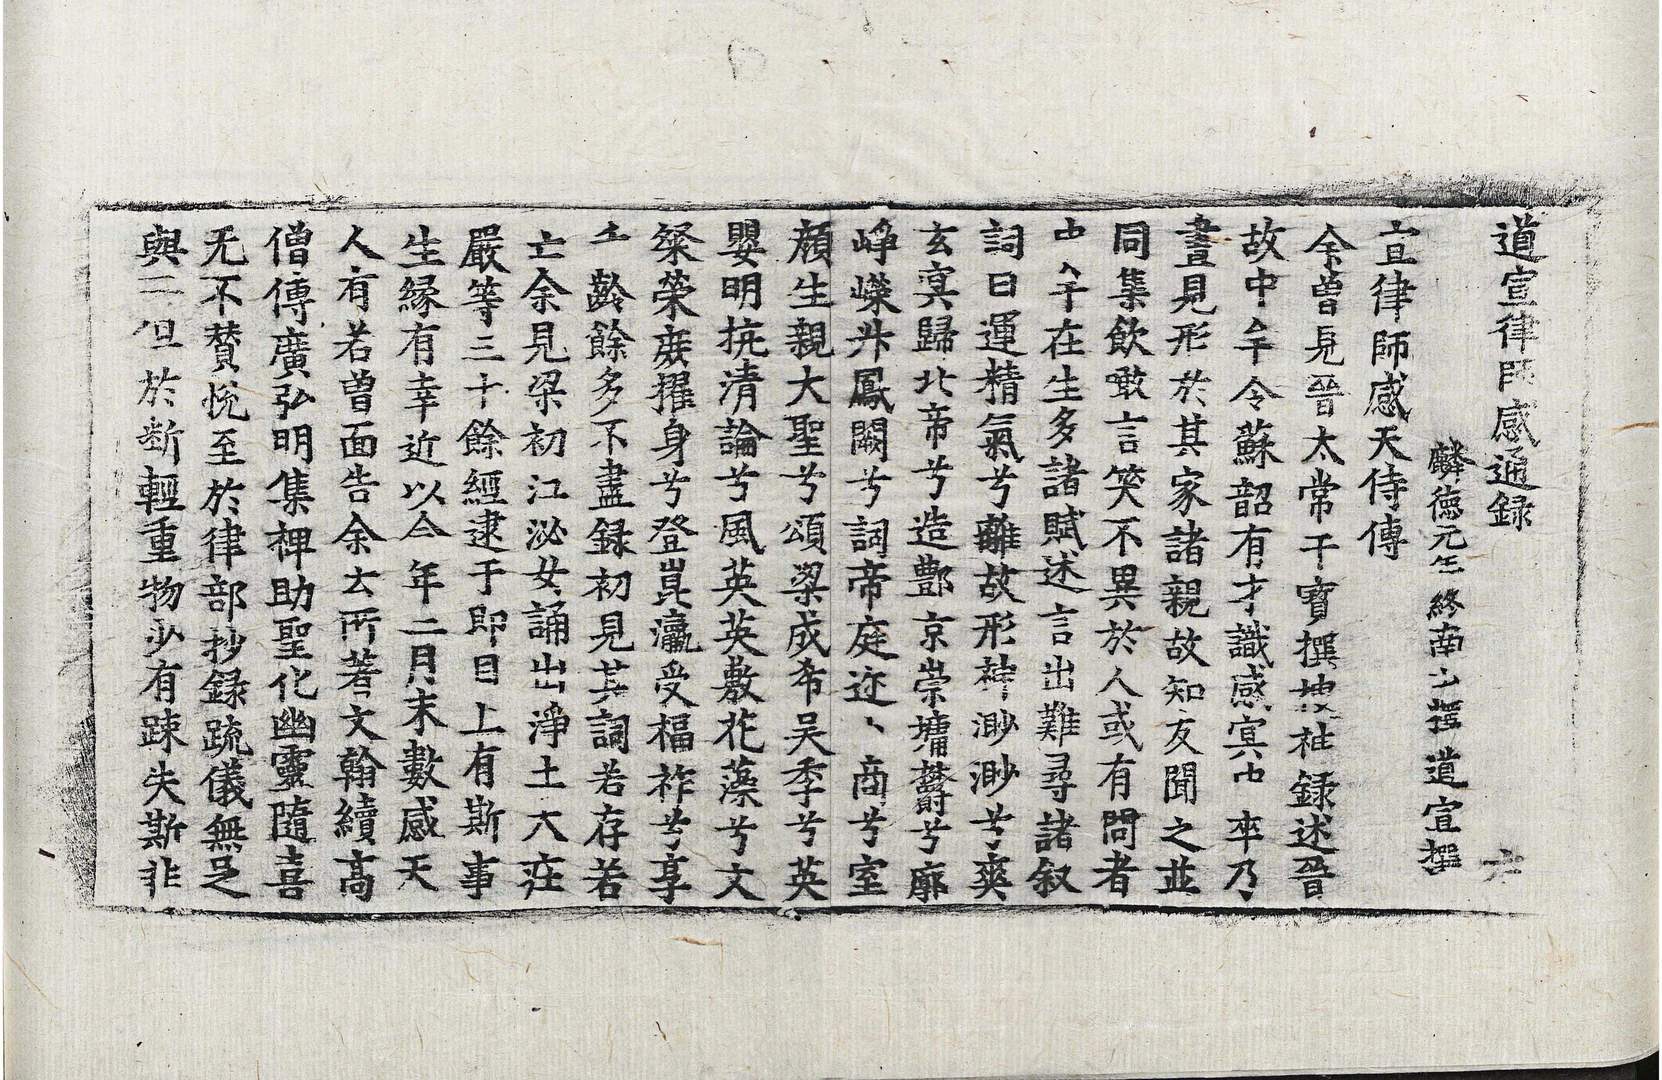 道宣律師感通録 六
麟德元年終南山釋道宣撰
宣律師感天侍傳
余曽見晉太常干寳撰搜神録述晉
故中牟令蘇韶有才識感冥中卒乃
晝見形於其家諸親故知友聞之並
同集飲噉言笑不異於人或有問者
中牟在生多諸賦述言出難尋諸叙
詞曰運精氣兮離故形神渺渺兮爽
玄冥歸北帝兮造酆京崇墉欝兮廓
崢嶸升鳳闕兮詞帝庭迩丶商兮室
顔生親大聖兮頌梁成希吴季兮英
嬰明抗清論兮風英英敷花藻兮文
粲榮庻擢身兮登崑瀛受福祚兮享
齡餘多不盡録初見其詞若存若
亡余見梁初江泌女誦出淨土大荘
嚴等三十餘經逮于即目上有斯事
生縁有幸近以今年二月末數感天
人有若曽面告余云所著文翰續高
僧傳廣弘明集裨助聖化幽靈隨喜
无不賛悦至於律部抄録疏儀無足
與二但於断輕重物少有踈失斯非